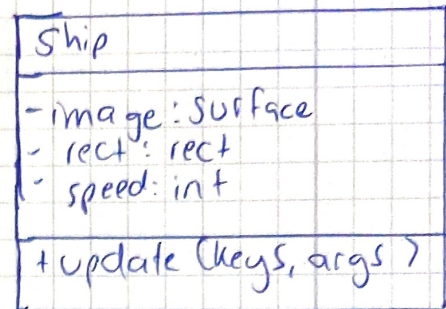 Ship
- image : surface
- rect : rect
- speed: int
+ update (keys, args )